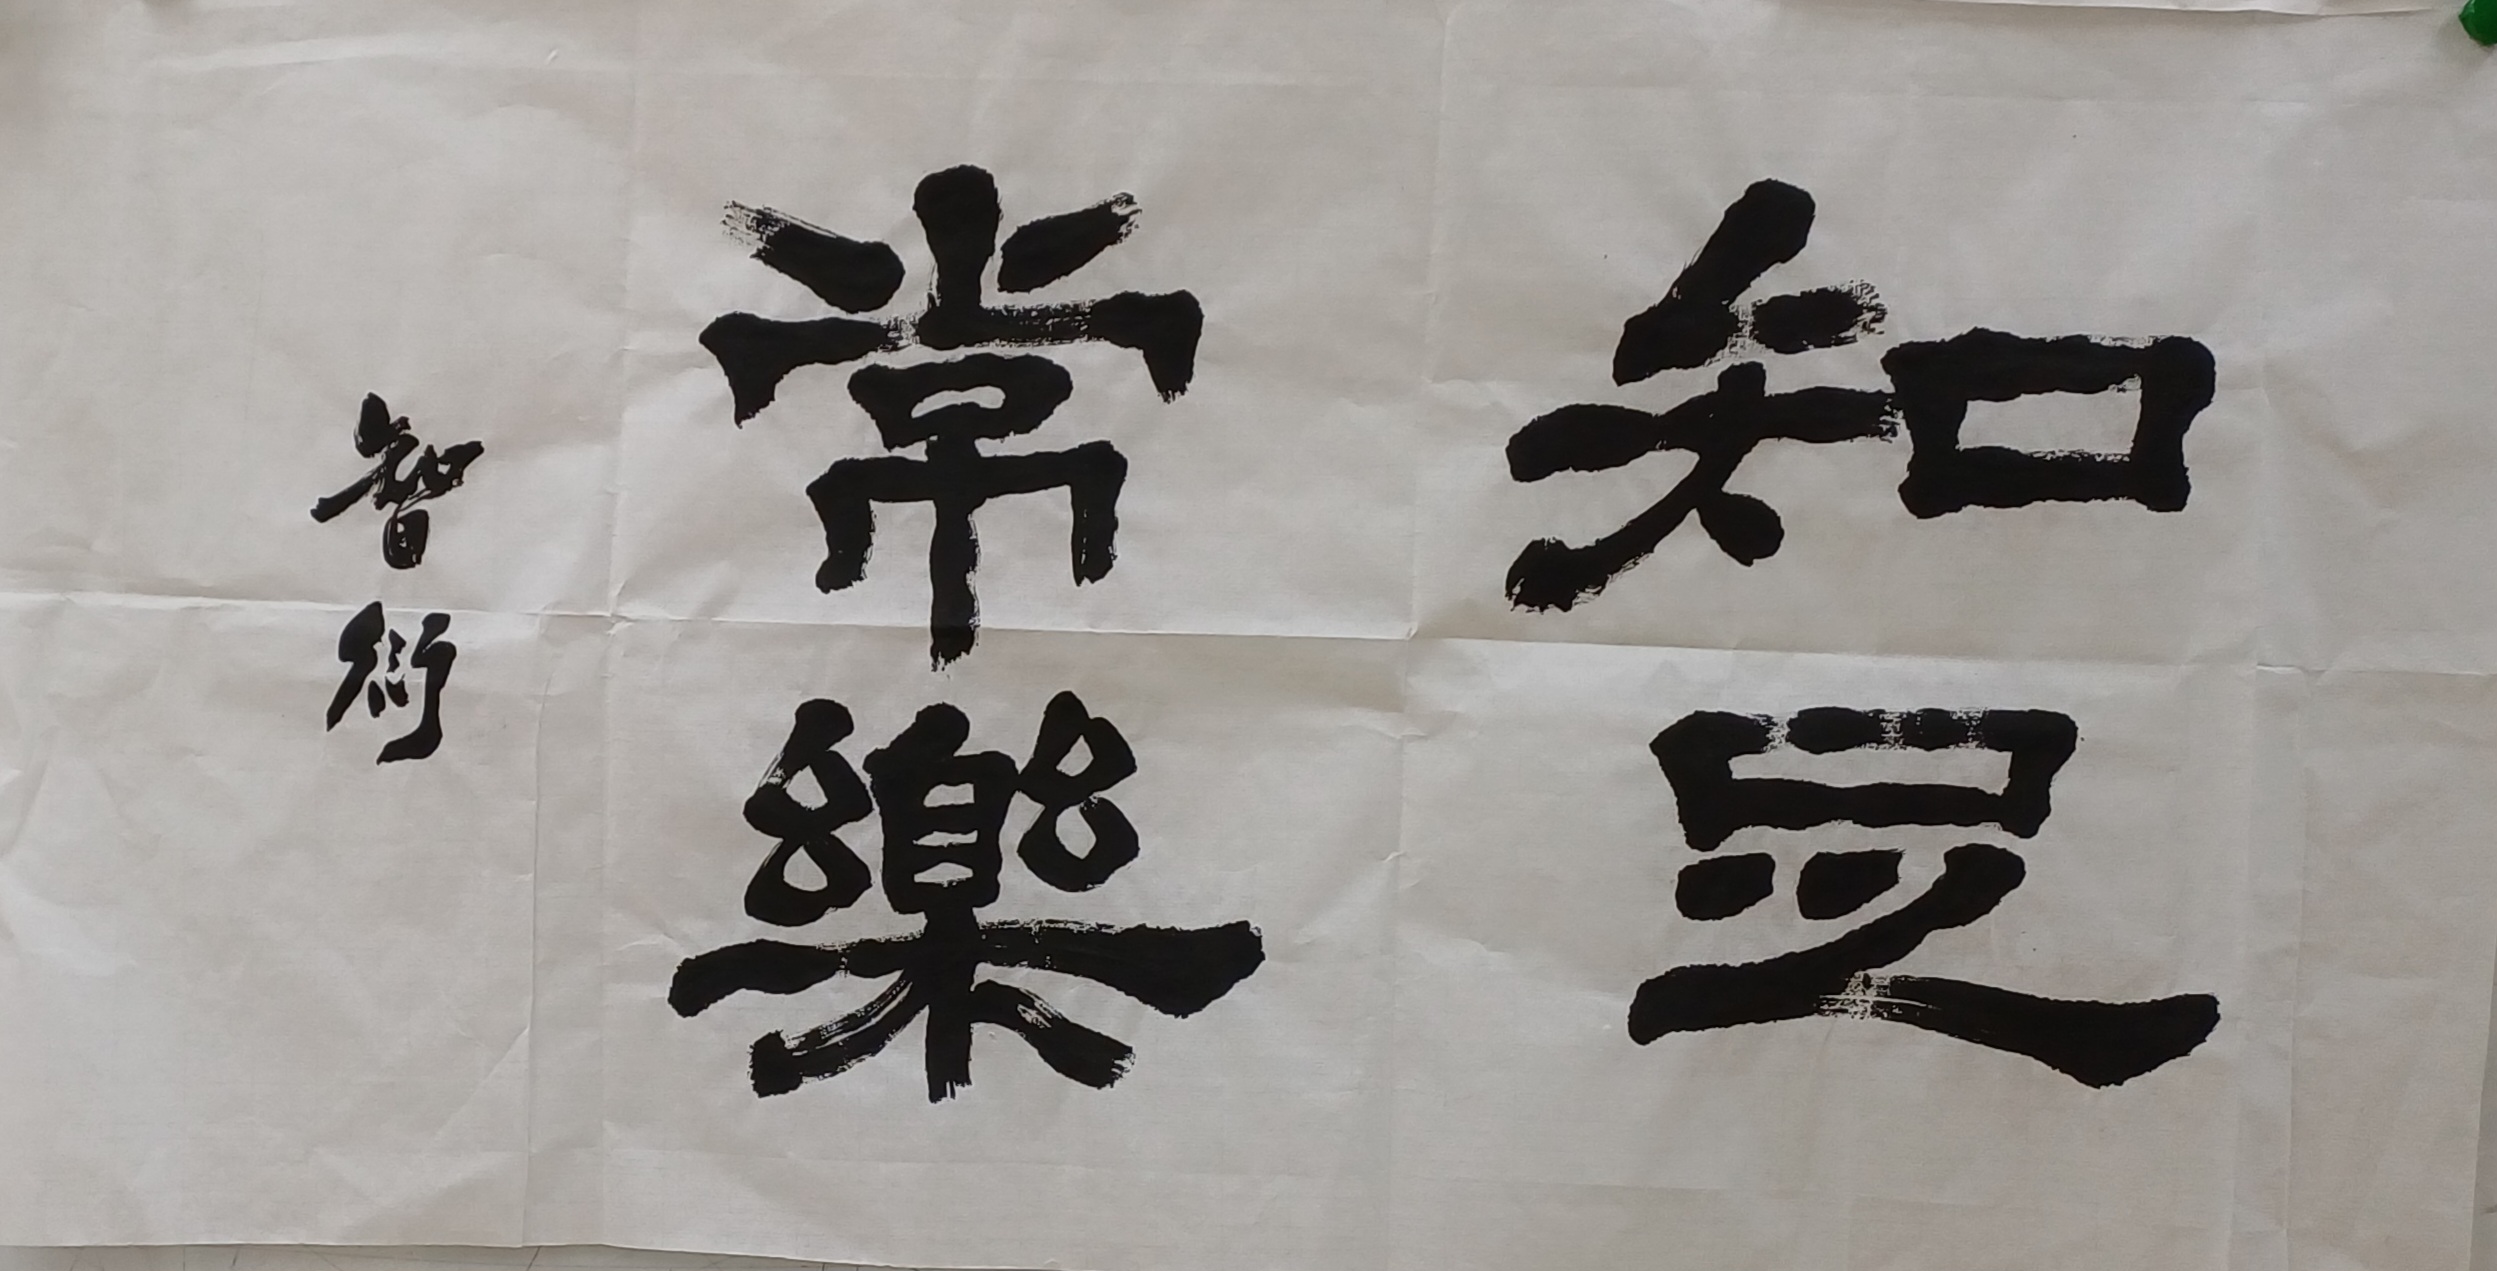 知足
常樂
智衍